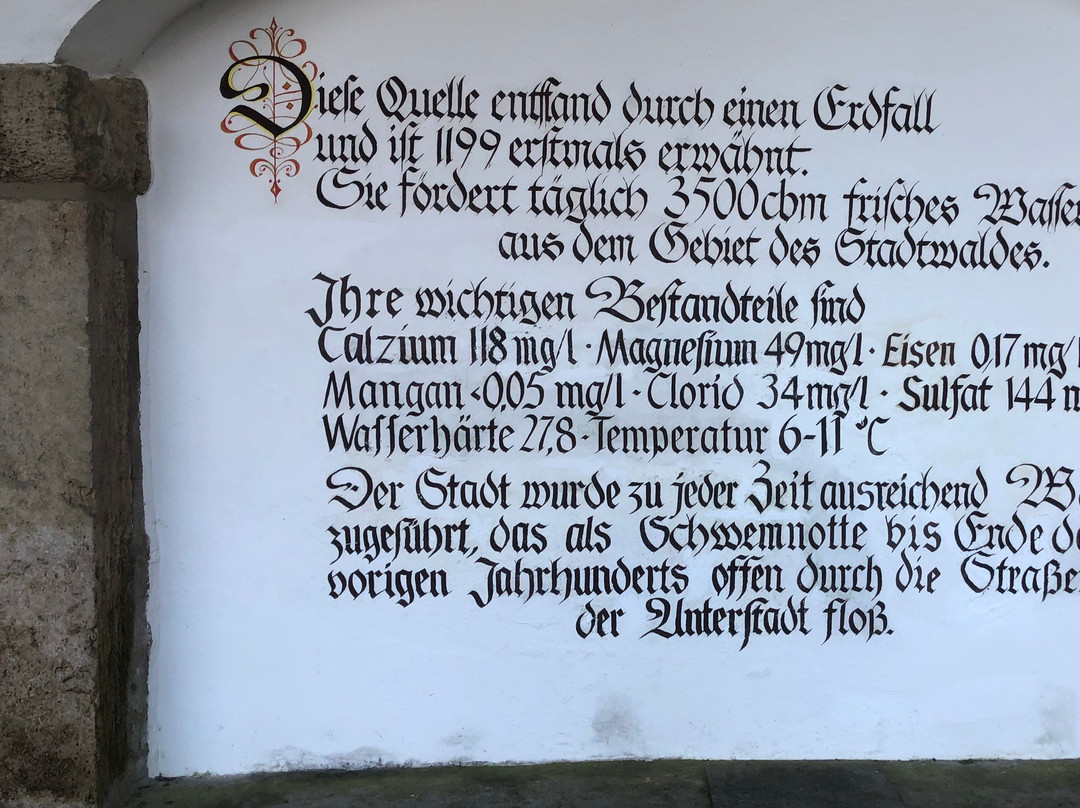 Diese Quelle entstand durch einen Erdfall
und ist 1199 erstmals erwähnt.
Sie fördert täglich 3500cbm frisches Wasser
aus dem Gebiet des Stadtwaldes.
Ihre wichtigen Bestandteile sind
Calzium 118 mg/l · Magnesium 49mg/l · Eisen 0,17 mg/l
Mangan <0,05 mg/l · Clorid 34mg/l · Sulfat 144 m
Wasserhärte 27,8 · Temperatur 6-11 °C
Der Stadt wurde zu jeder Zeit ausreichend
zugeführt, das als Schwemnotte bis Ende
vorigen Jahrhunderts offen durch die Straßen
der Unterstadt floß.